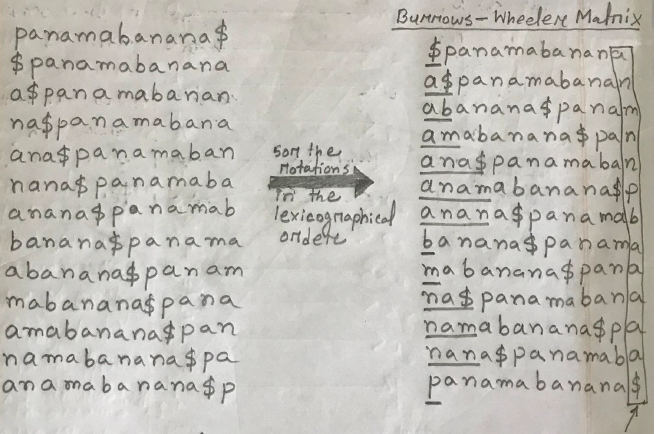 panamabanana$
$panamabanana
a$panamabanan
na$panamabana
ana$panamaban
nana$panamaba
anana$panamab
banana$panama
abanana$panam
mabanana$pana
amabanana$pan
namabanana$pa
anamabanana$p
Sort the
Rotations
in the
lexicographical
order
Burrows-Wheeler Matrix
$panamabanana
a$panamabanan
abanana$panam
amabanana$pan
ana$panamaban
anamabanana$p
anana$panamab
banana$panama
mabanana$pana
na$panamabana
namabanana$pa
nana$panamaba
panamabanana$